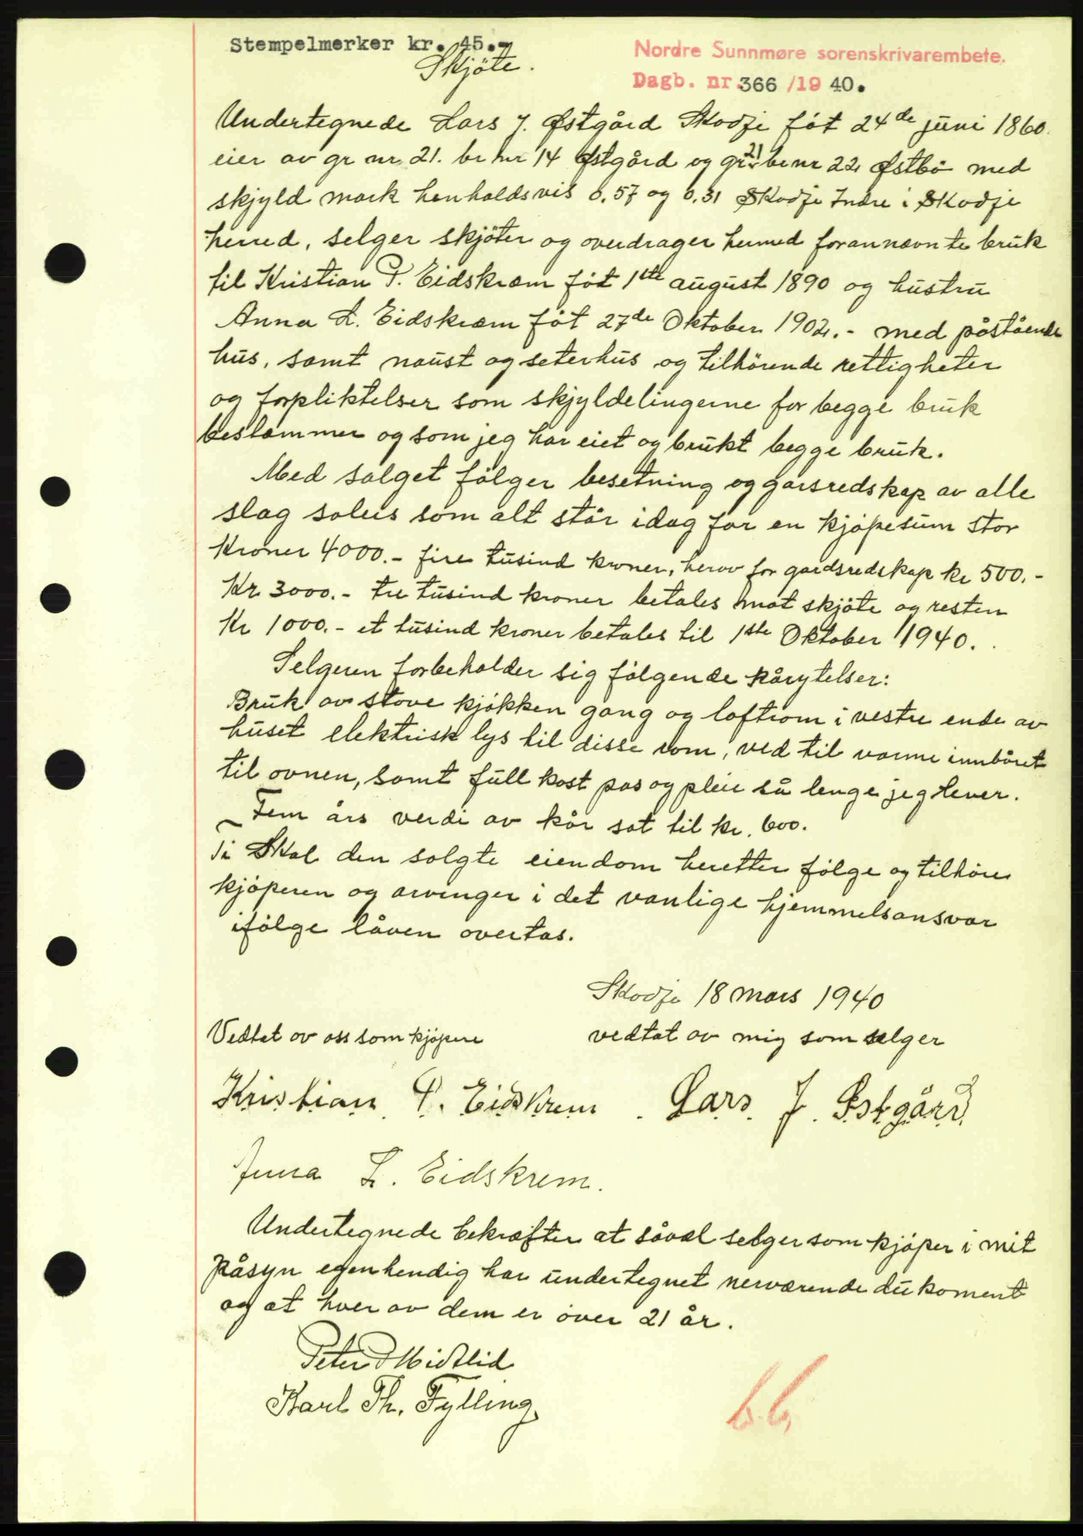 Stempelmerker kr. 45.-
Nordre Sunnmøre sorenskrivarembete.
Dagb. nr. 366 /19 40.
Skjöte.
Undertegnede Lars J. Østgård Skodje föt 24de juni 1860.
eier av gr nr. 21. br nr 14 Østgård og gr 21 br nr 22 Østbö med
skjyld mark henholdsvis 0.57 og 0.31 Skodje Indre i Skodje
herred, selger skjöter og overdrager hermed forannævnte bruk
til Kristian P. Eidskræm föt 1ste august 1890 og hustru
Anna L. Eidskræm föt 27de Oktober 1902. - med påstående
hus, samt naust og seterhus og tilhörende rettigheter
og forpliktelser som skjyldelingerne for begge bruk
bestemmer og som jeg har eiet og brukt begge bruk.
Med salget fölger besetning og garsredskap av alle
slag saleis som alt står idag for en kjöpesum stor
Kroner 4000.- fire tusind kroner, herav for gardsredskap kr 500.-
Kr. 3000.- tre tusind kroner betales mot skjöte og resten
Kr 1000.- et tusind kroner betales til 1ste Oktober 1940.
Selgeren forbeholder sig fölgende kårytelser:
Bruk av stove kjökken gang og loftrom i vestre ende av
huset elektrisk lys til disse rom, ved til varme innbåret
til ovnen, samt full kost pas og pleie så lenge jeg lever.
Fem års verdi av kår sat til kr. 600.
Ti Skal den solgte eiendom heretter fölge og tilhöre
kjöperen og arvinger i det vanlige hjemmelsansvar
ifölge låven overtas.
Skodje 18 mars 1940
Vedtat av oss som kjöpere
vedtat av mig som selger
Kristian P. Eidskrem
Lars J. Østgård
Anna L. Eidskrem.
Undertegnede bekræfter at såvel selger som kjöper i mit
påsyn egenhendig har undertegnet nerværende dukoment
og at hver av dem er över 21 år.
Peter Midtlid
Karl Th. Fylling